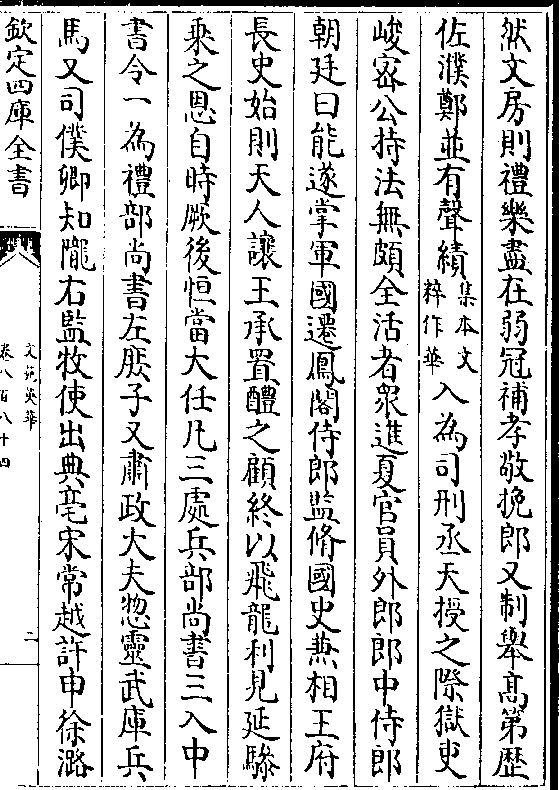 然文房則禮樂盡在弱冠補孝敬挽郎又制舉高第歷
佐濮鄭並有聲績集本文粹作華入為司刑丞天授之際獄吏
峻密公持法無頗全活者衆進夏官員外郎郎中侍郎
朝廷曰能遂掌軍國遷鳳閣侍郎監脩國史兼相王府
長史始則天人讓王承置醴之顧終以飛龍利見延驂
乘之恩自時厥後恒當大任凡三處兵部尚書三入中
書令一為禮部尚書左庶子又肅政大夫惣靈武庫兵
馬又司僕卿知隴右監牧使出典亳宋常越許申徐潞
欽定四庫全書
文苑英華
卷八百八十四
二